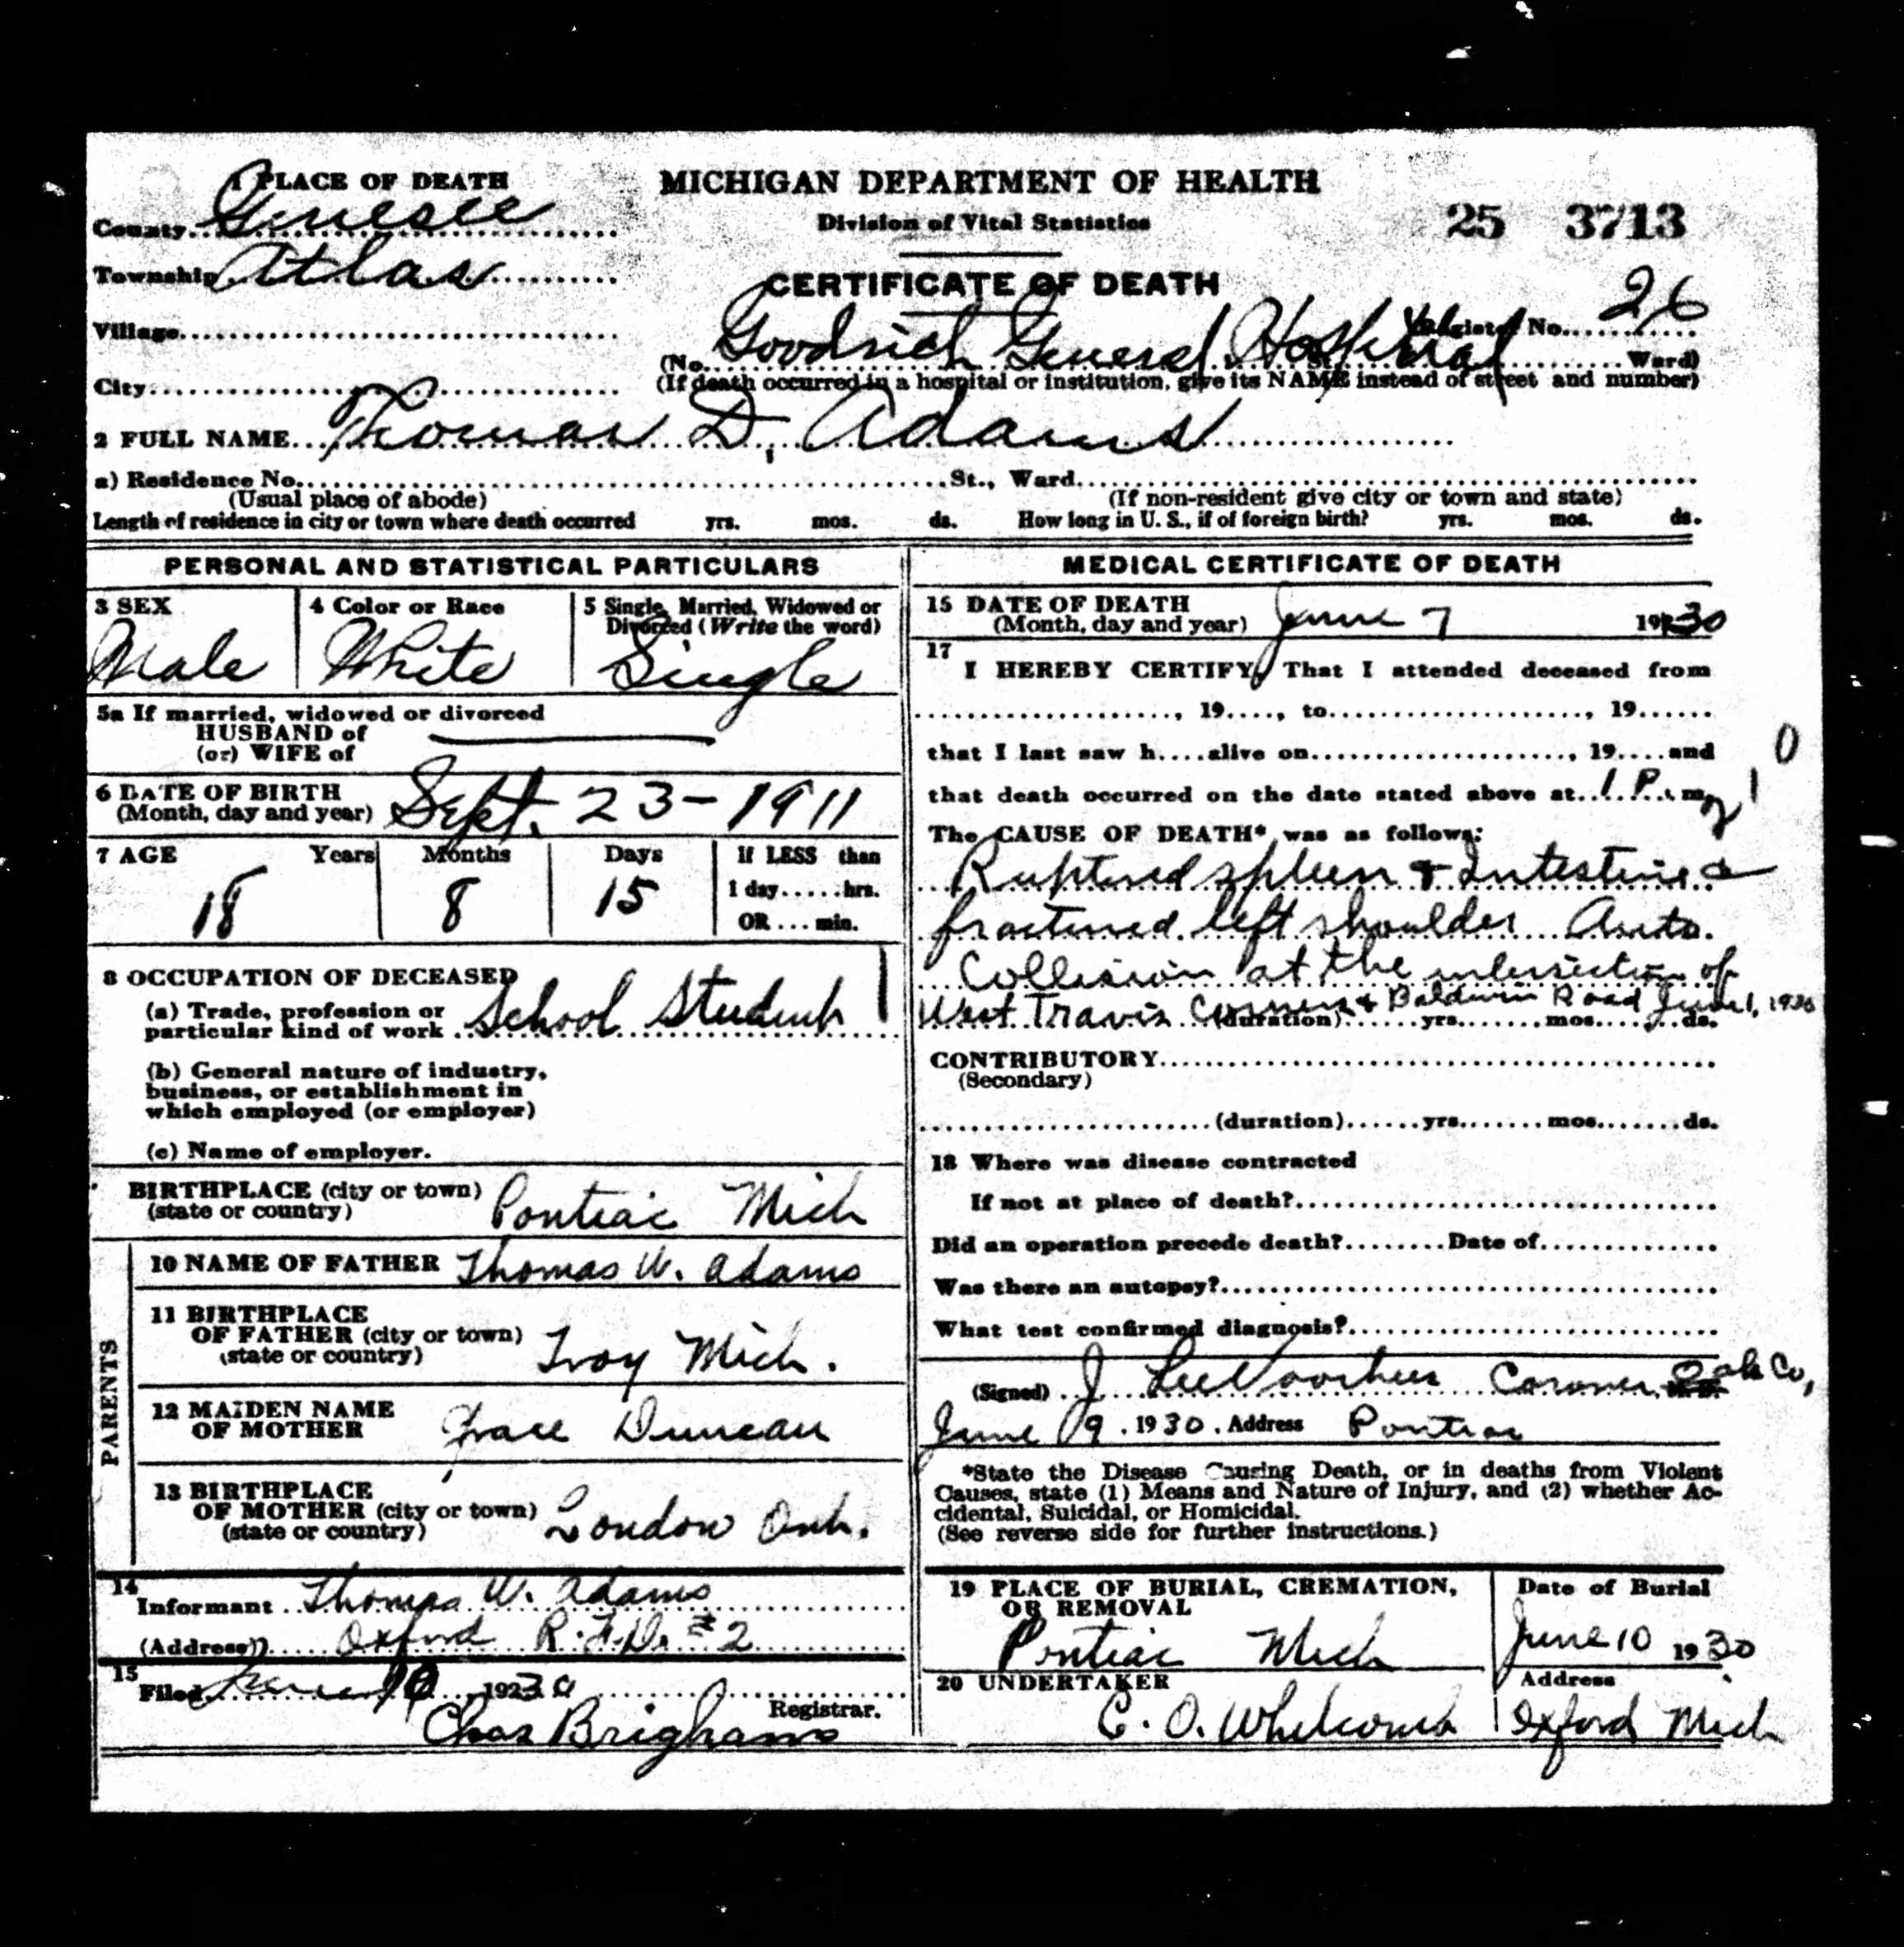 1 PLACE OF DEATH
MICHIGAN DEPARTMENT OF HEALTH
Division of Vital Statistics
25 3713
County Genesee
Township Atlas
CERTIFICATE OF DEATH
Village
Register No. 26
(No. Goodrich General Hospital St. Ward)
City
(If death occurred in a hospital or institution, give its NAME instead of street and number)
2 FULL NAME Thomas D. Adams
a) Residence No. St., Ward
(Usual place of abode) (If non-resident give city or town and state)
Length of residence in city or town where death occurred yrs. mos. ds. How long in U. S., if of foreign birth? yrs. mos. ds.
PERSONAL AND STATISTICAL PARTICULARS
3 SEX
Male
4 Color or Race
White
5 Single, Married, Widowed or
Divorced (Write the word)
Single
5a If married, widowed or divorced
HUSBAND of
(or) WIFE of
6 DATE OF BIRTH
(Month, day and year) Sept. 23-1911
7 AGE Years Months Days If LESS than
1 day......hrs.
OR ... min.
18 8 15
8 OCCUPATION OF DECEASED
(a) Trade, profession or
particular kind of work School Student
(b) General nature of industry,
business, or establishment in
which employed (or employer)
(c) Name of employer.
BIRTHPLACE (city or town)
(state or country) Pontiac Mich
PARENTS
10 NAME OF FATHER Thomas W. Adams
11 BIRTHPLACE
OF FATHER (city or town)
(state or country) Troy Mich.
12 MAIDEN NAME
OF MOTHER Grace Duncan
13 BIRTHPLACE
OF MOTHER (city or town)
(state or country) London Ont.
14
Informant Thomas W. Adams
(Address) Oxford R.F.D. #2
15
Filed June 1930
Registrar.
Chas Brigham
MEDICAL CERTIFICATE OF DEATH
15 DATE OF DEATH
(Month, day and year) June 7 1930
17
I HEREBY CERTIFY, That I attended deceased from
, 19...., to , 19......
that I last saw h....alive on , 19....and
that death occurred on the date stated above at 1 P. m.
The CAUSE OF DEATH* was as follows:
Ruptured spleen & Intestine &
fractured left shoulder Auto.
Collision at the intersection of
West Travis Corners & Baldwin Road June 1, 1930
(duration) yrs. mos. ds.
CONTRIBUTORY
(Secondary)
(duration) yrs. mos. ds.
18 Where was disease contracted
If not at place of death?
Did an operation precede death? Date of
Was there an autopsy?
What test confirmed diagnosis?
(Signed) J Lee Voorhees Coroner Oak Co,
June 9. 1930. Address Pontiac
*State the Disease Causing Death, or in deaths from Violent
Causes, state (1) Means and Nature of Injury, and (2) whether Ac-
cidental, Suicidal, or Homicidal.
(See reverse side for further instructions.)
19 PLACE OF BURIAL, CREMATION,
OR REMOVAL
Pontiac Mich
Date of Burial
June 10 1930
20 UNDERTAKER
C. O. Whitcomb
Address
Oxford Mich